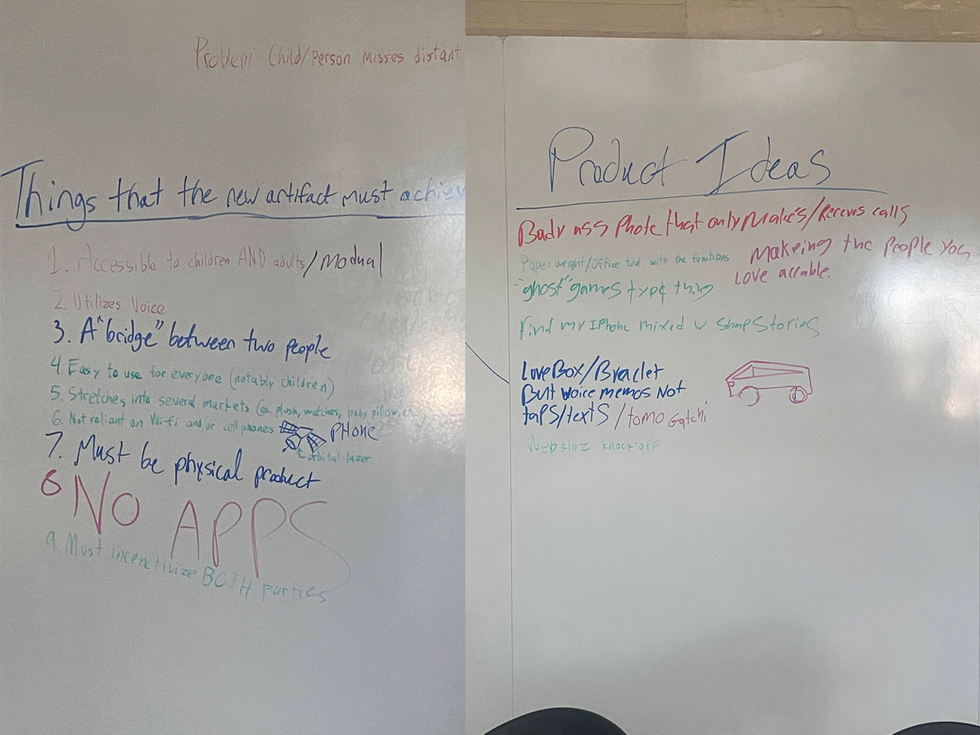 Problem: Child/Person misses distant
Things that the new artifact must achiev
1. Accessible to children AND adults/modual
2. Utilizes Voice
3. A "bridge" between two people
4 Easy to use for everyone (notably children)
5. Stretches into several markets (ex plush, watches, body pillow, etc)
6. Not reliant on Wi-fi and/or cell phones
PHone
orbital lazer
7. Must be physical product
8 NO APPS
9. Must incenctivize BOTH parties
Product Ideas
Bady ass Phote that only Makes/Receves calls
Paper weight/Office tool with the functions
Makeing the People you
Love
"ghost" games type thing
find my IPhone mixed w snapstories
LoveBox/Braclet
But voice memos Not
taps/texts/tomo Gatchi
Webkinz knock-off